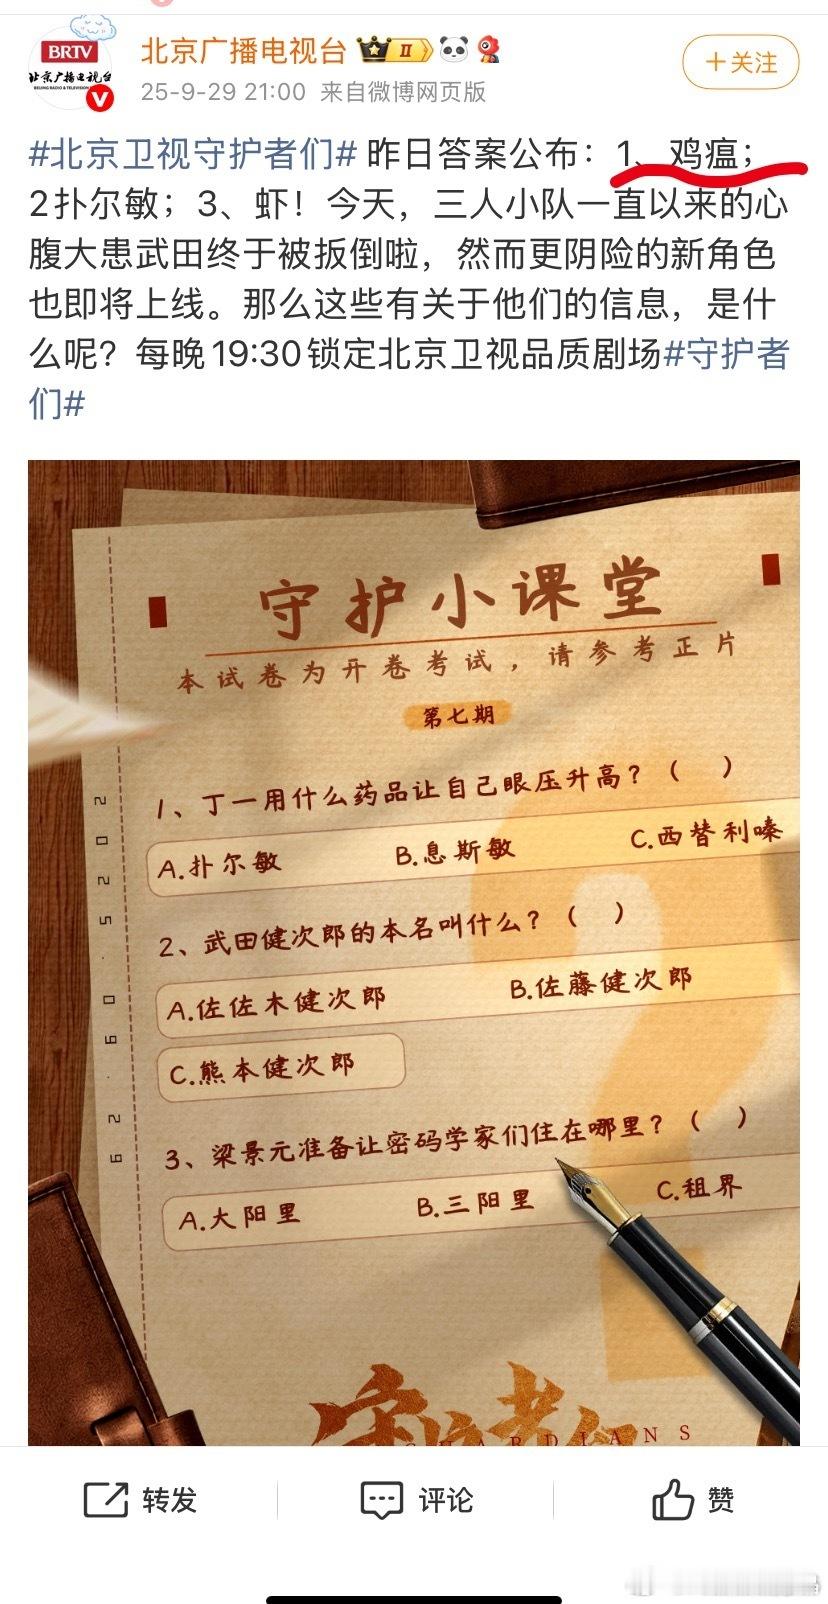 BRTV
北京广播电视台
BEIJING RADIO & TELEVISION
V
北京广播电视台 II
25-9-29 21:00 来自微博网页版
+关注
#北京卫视守护者们# 昨日答案公布：1、鸡瘟；
2扑尔敏；3、虾！今天，三人小队一直以来的心
腹大患武田终于被扳倒啦，然而更阴险的新角色
也即将上线。那么这些有关于他们的信息，是什
么呢？每晚19:30锁定北京卫视品质剧场#守护者
们#
守护小课堂
本试卷为开卷考试，请参考正片
第七期
1、丁一用什么药品让自己眼压升高？（ ）
A.扑尔敏 B.息斯敏 C.西替利嗪
2、武田健次郎的本名叫什么？（ ）
A.佐佐木健次郎 B.佐藤健次郎
C.熊本健次郎
3、梁景元准备让密码学家们住在哪里？（ ）
A.大阳里 B.三阳里 C.租界
2025.09.29
守护者们
GUARDIANS
转发 评论 赞